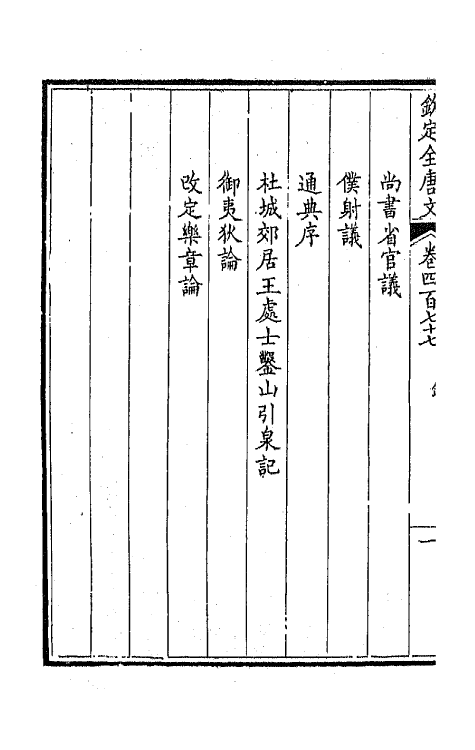 欽定全唐文 卷四百七十七
一
尚書省官議
僕射議
通典序
杜城郊居王處士鑿山引泉記
御夷狄論
改定樂章論